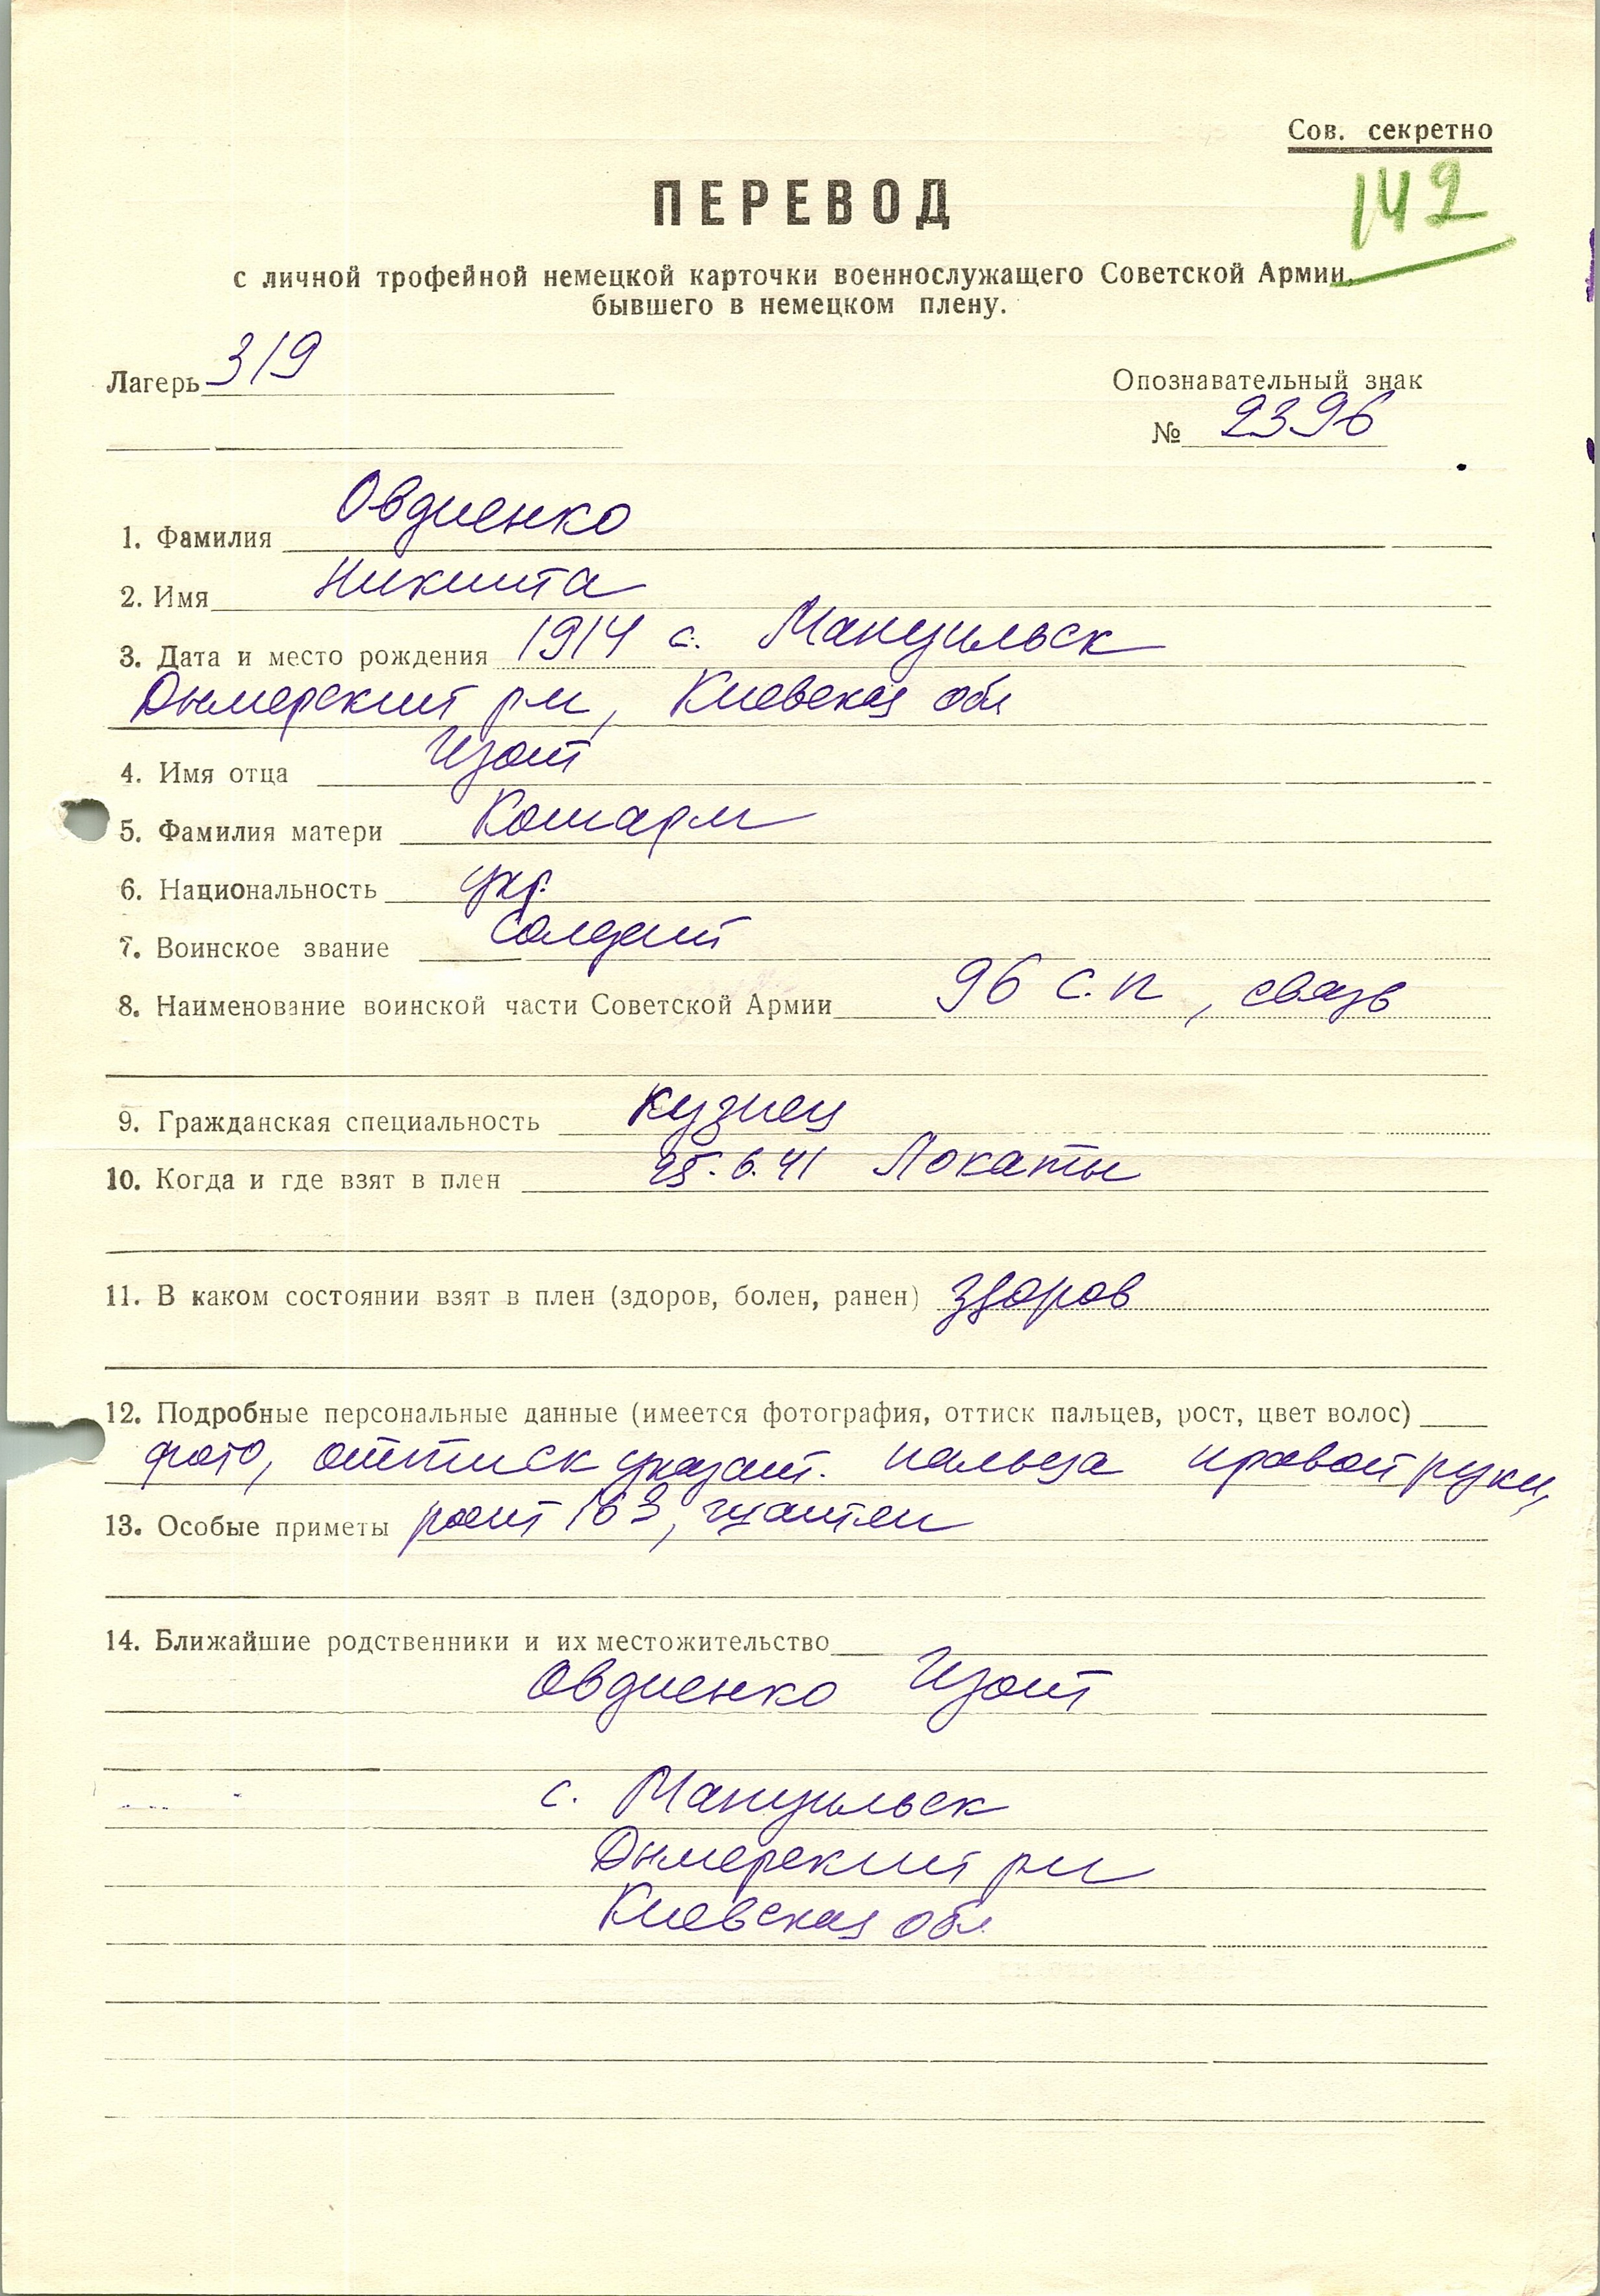 Сов. секретно
142
ПЕРЕВОД
с личной трофейной немецкой карточки военнослужащего Советской Армии,
бывшего в немецком плену.
Лагерь 319
Опознавательный знак
№ 2396
1. Фамилия Овдиенко
2. Имя Никита
3. Дата и место рождения 1914 с. Мануильск
Дымерский р-н, Киевская обл
4. Имя отца Изот
5. Фамилия матери
6. Национальность укр.
7. Воинское звание Солдат
8. Наименование воинской части Советской Армии 96 с.п, связь
9. Гражданская специальность кузнец
10. Когда и где взят в плен 25.6.41 Локаты
11. В каком состоянии взят в плен (здоров, болен, ранен) здоров
12. Подробные персональные данные (имеется фотография, оттиск пальцев, рост, цвет волос)
фото, оттиск указат. пальца правой руки,
13. Особые приметы рост 163, шатен
14. Ближайшие родственники и их местожительство
Овдиенко Изот
с. Мануильск
Дымерский р-н
Киевская обл.